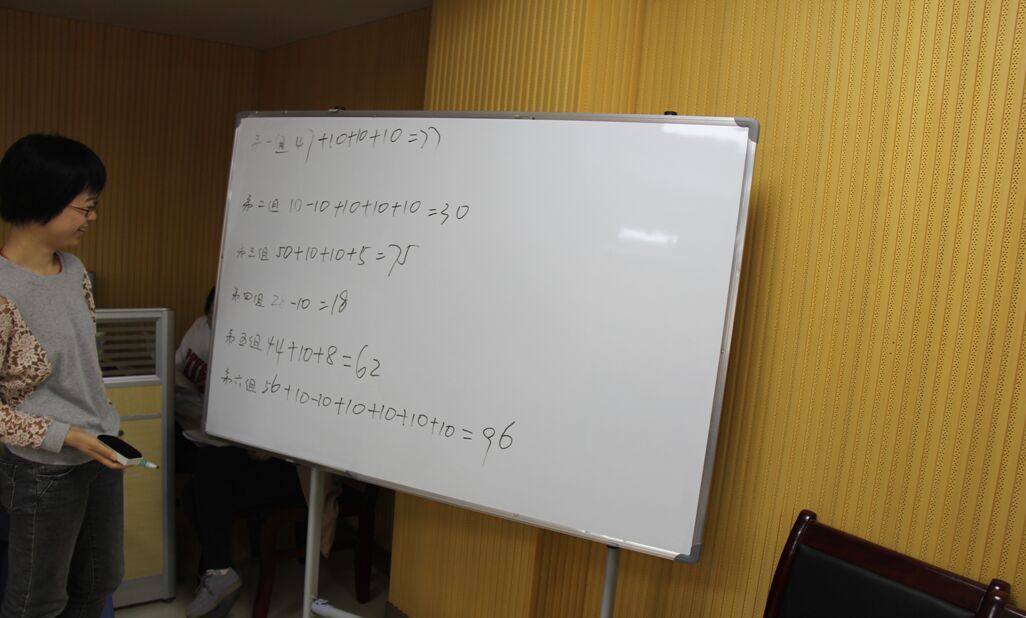 第一组 47+10+10+10=77
第二组 10-10+10+10+10=30
第三组 50+10+10+5=75
第四组 28-10=18
第五组 44+10+8=62
第六组 56+10-10+10+10+10+10=96